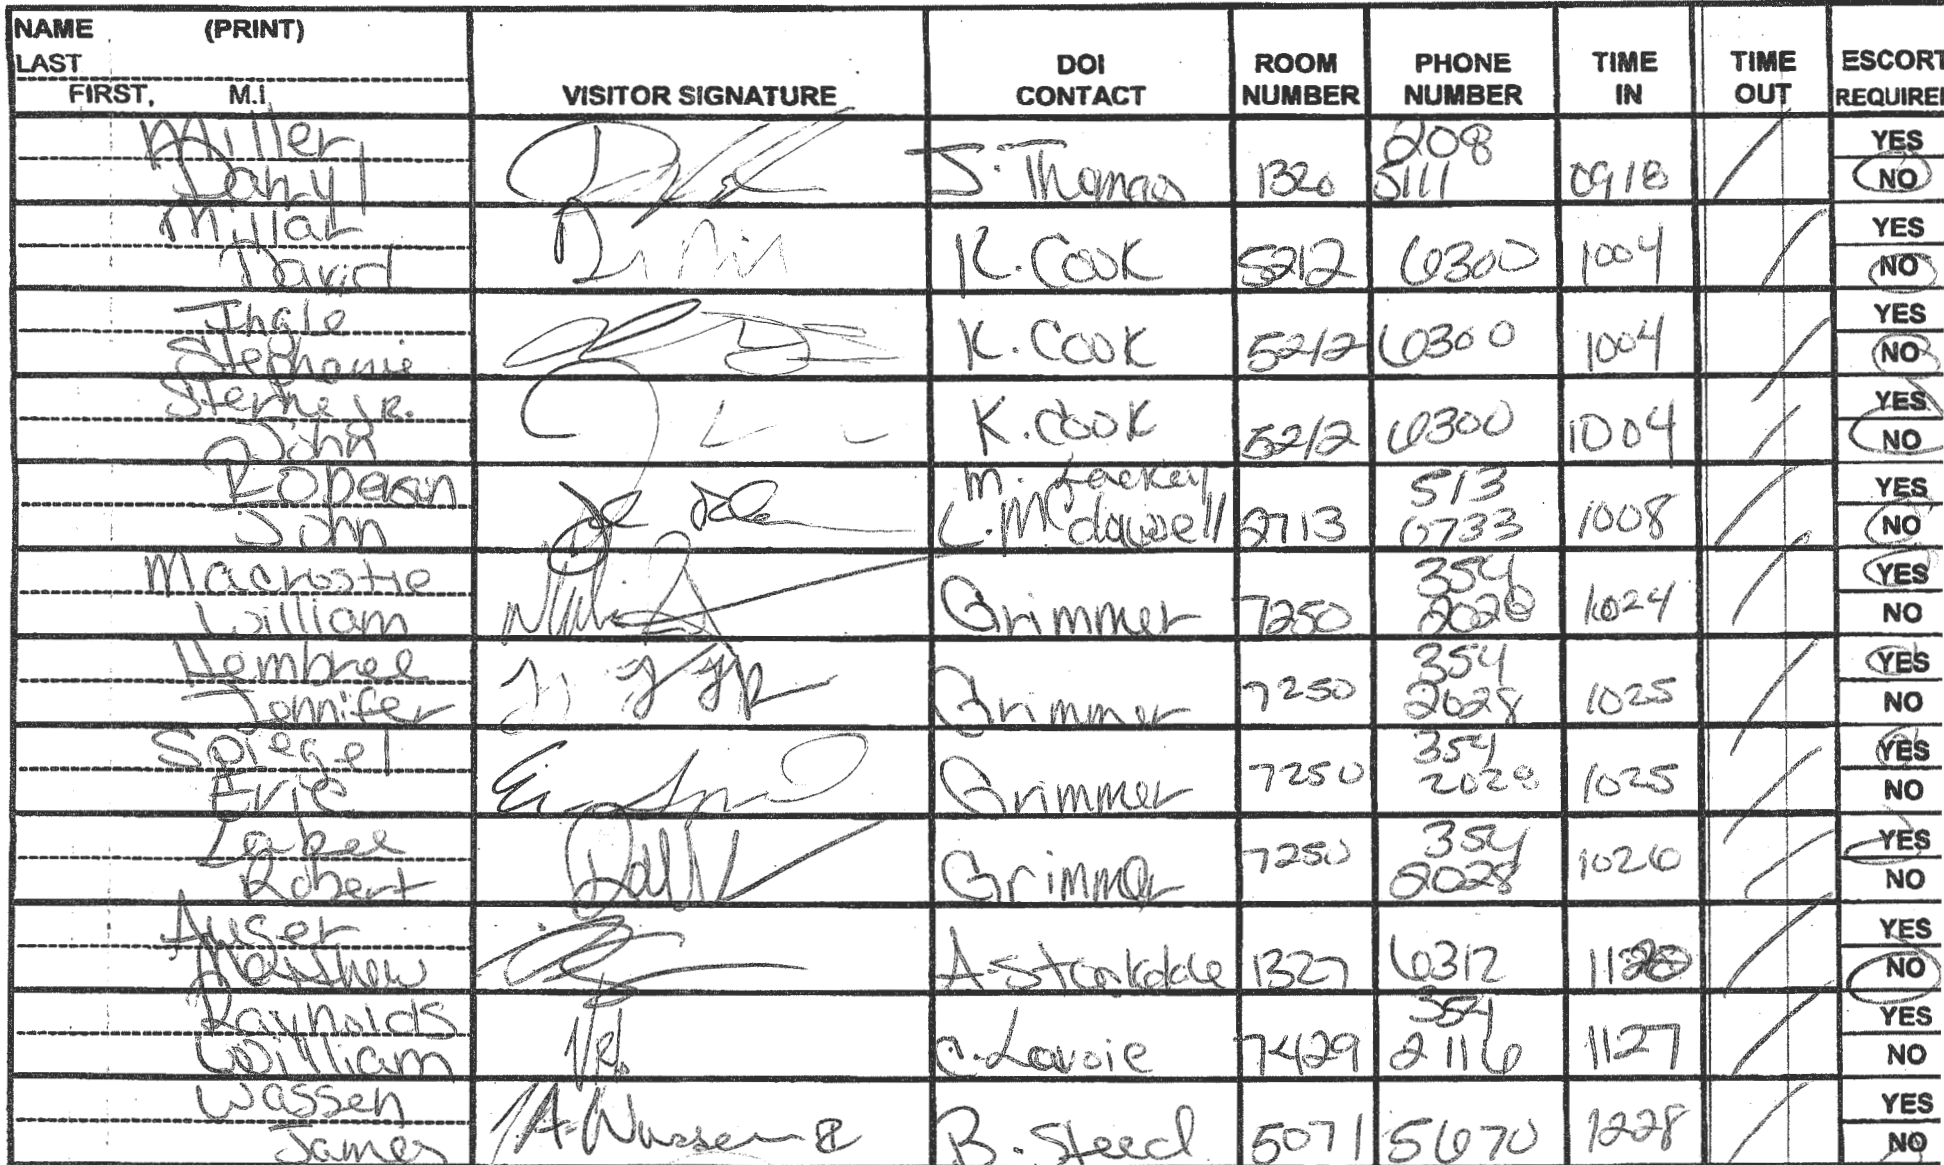 NAME (PRINT)
LAST
FIRST, M.I. VISITOR SIGNATURE DOI CONTACT ROOM NUMBER PHONE NUMBER TIME IN TIME OUT ESCORT REQUIRED
Miller
Darryl J. Thomas 1320 208 5111 0918 YES NO
Millar
David K. Cook 5212 6300 1004 YES NO
Ihale
Stephanie K. Cook 5212 6300 1004 YES NO
Sterne JR.
John K. Cook 5212 6300 1004 YES NO
Roperson M. Lackey 513
John L. McDowell 2713 0733 1008 YES NO
Macrostie 354
William Grimmer 7250 2028 1024 YES NO
Hembree 354
Jennifer Grimmer 7250 2028 1025 YES NO
Spiegel 354
Eric Grimmer 7250 2028 1025 YES NO
Labee 354
Robert Grimmer 7250 2028 1026 YES NO
Auger
Matthew 1327 6312 YES NO
Raynolds 354
William C. Lavoie 7429 2116 1127 YES NO
Wassen
James A. Wassen B. Steed 5071 5670 1228 YES NO